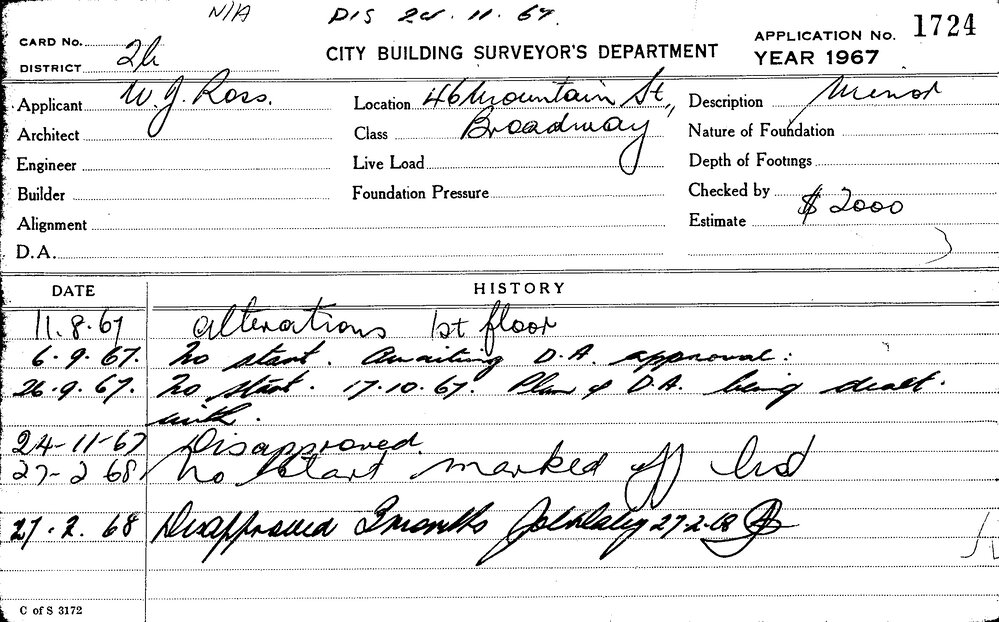 N/A DIS 24.11.67.
CARD No. APPLICATION NO. 1724
DISTRICT 2b CITY BUILDING SURVEYOR'S DEPARTMENT YEAR 1967
Applicant W. J. Ross. Location 46 Mountain St., Description Minor
Architect Class Broadway Nature of Foundation
Engineer Live Load Depth of Footings
Builder Foundation Pressure Checked by
Alignment Estimate $2000
D.A.
DATE HISTORY
11.8.67 alterations 1st floor
6.9.67. No start. Awaiting D.A. approval.
26.9.67. No start. 17.10.67. Plan & D.A. being dealt
with.
24-11-67 Disapproved.
27-2 68 No start marked off list
27.2.68 Disapproved 3 months 27.2.68
C of S 3172